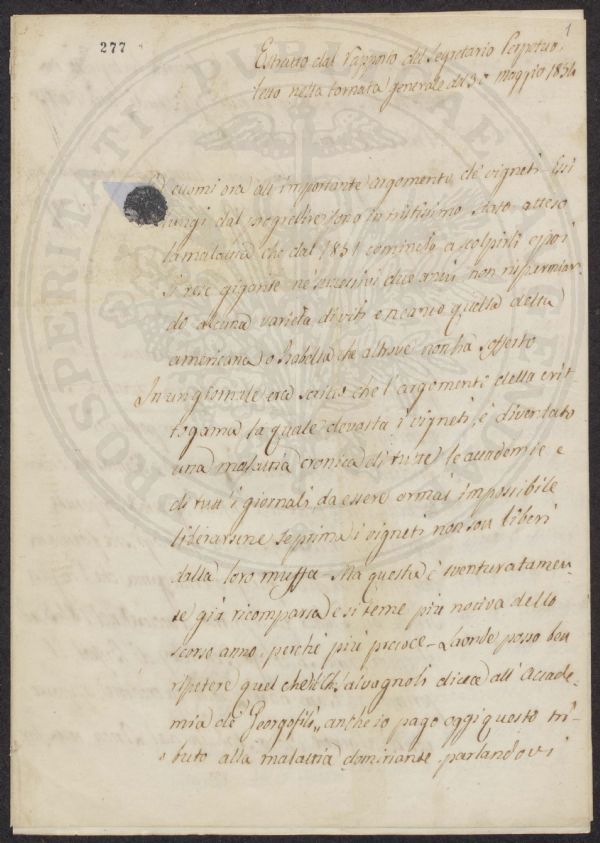 277
1
Estratto dal rapporto del Segretario Perpetuo,
letto nella tornata generale del 30 maggio 1854
cuomi ora all'importante argomento de' vigneti. Essi
lungi dal progredire sono in tristissimo stato atteso
la malattia che dal 1851 cominciò a colpirli e poi
si rese gigante ne' successivi due anni non risparmian-
do alcuna varietà di viti e neanco quella della
americana o Isabella che altrove non ha sofferto
In un giornale era scritto che l'argomento della crit-
togama la quale devasta i vigneti, è diventato
una malattia cronica di tutte le accademie e
di tutt'i giornali, da essere ormai impossibile
liberarsene se prima i vigneti non son liberi
dalla loro muffa - Ma questa è sventuratamen-
te già ricomparsa e si teme più nociva dello
scorso anno, perchè più precoce - Laonde posso ben
ripetere quel che il Ch. Salvagnoli dicea all'Accade-
mia de' Georgofili „ anche io pago oggi questo tri-
buto alla malattia dominante parlandovi
PROSPERITATI PUBLICAE